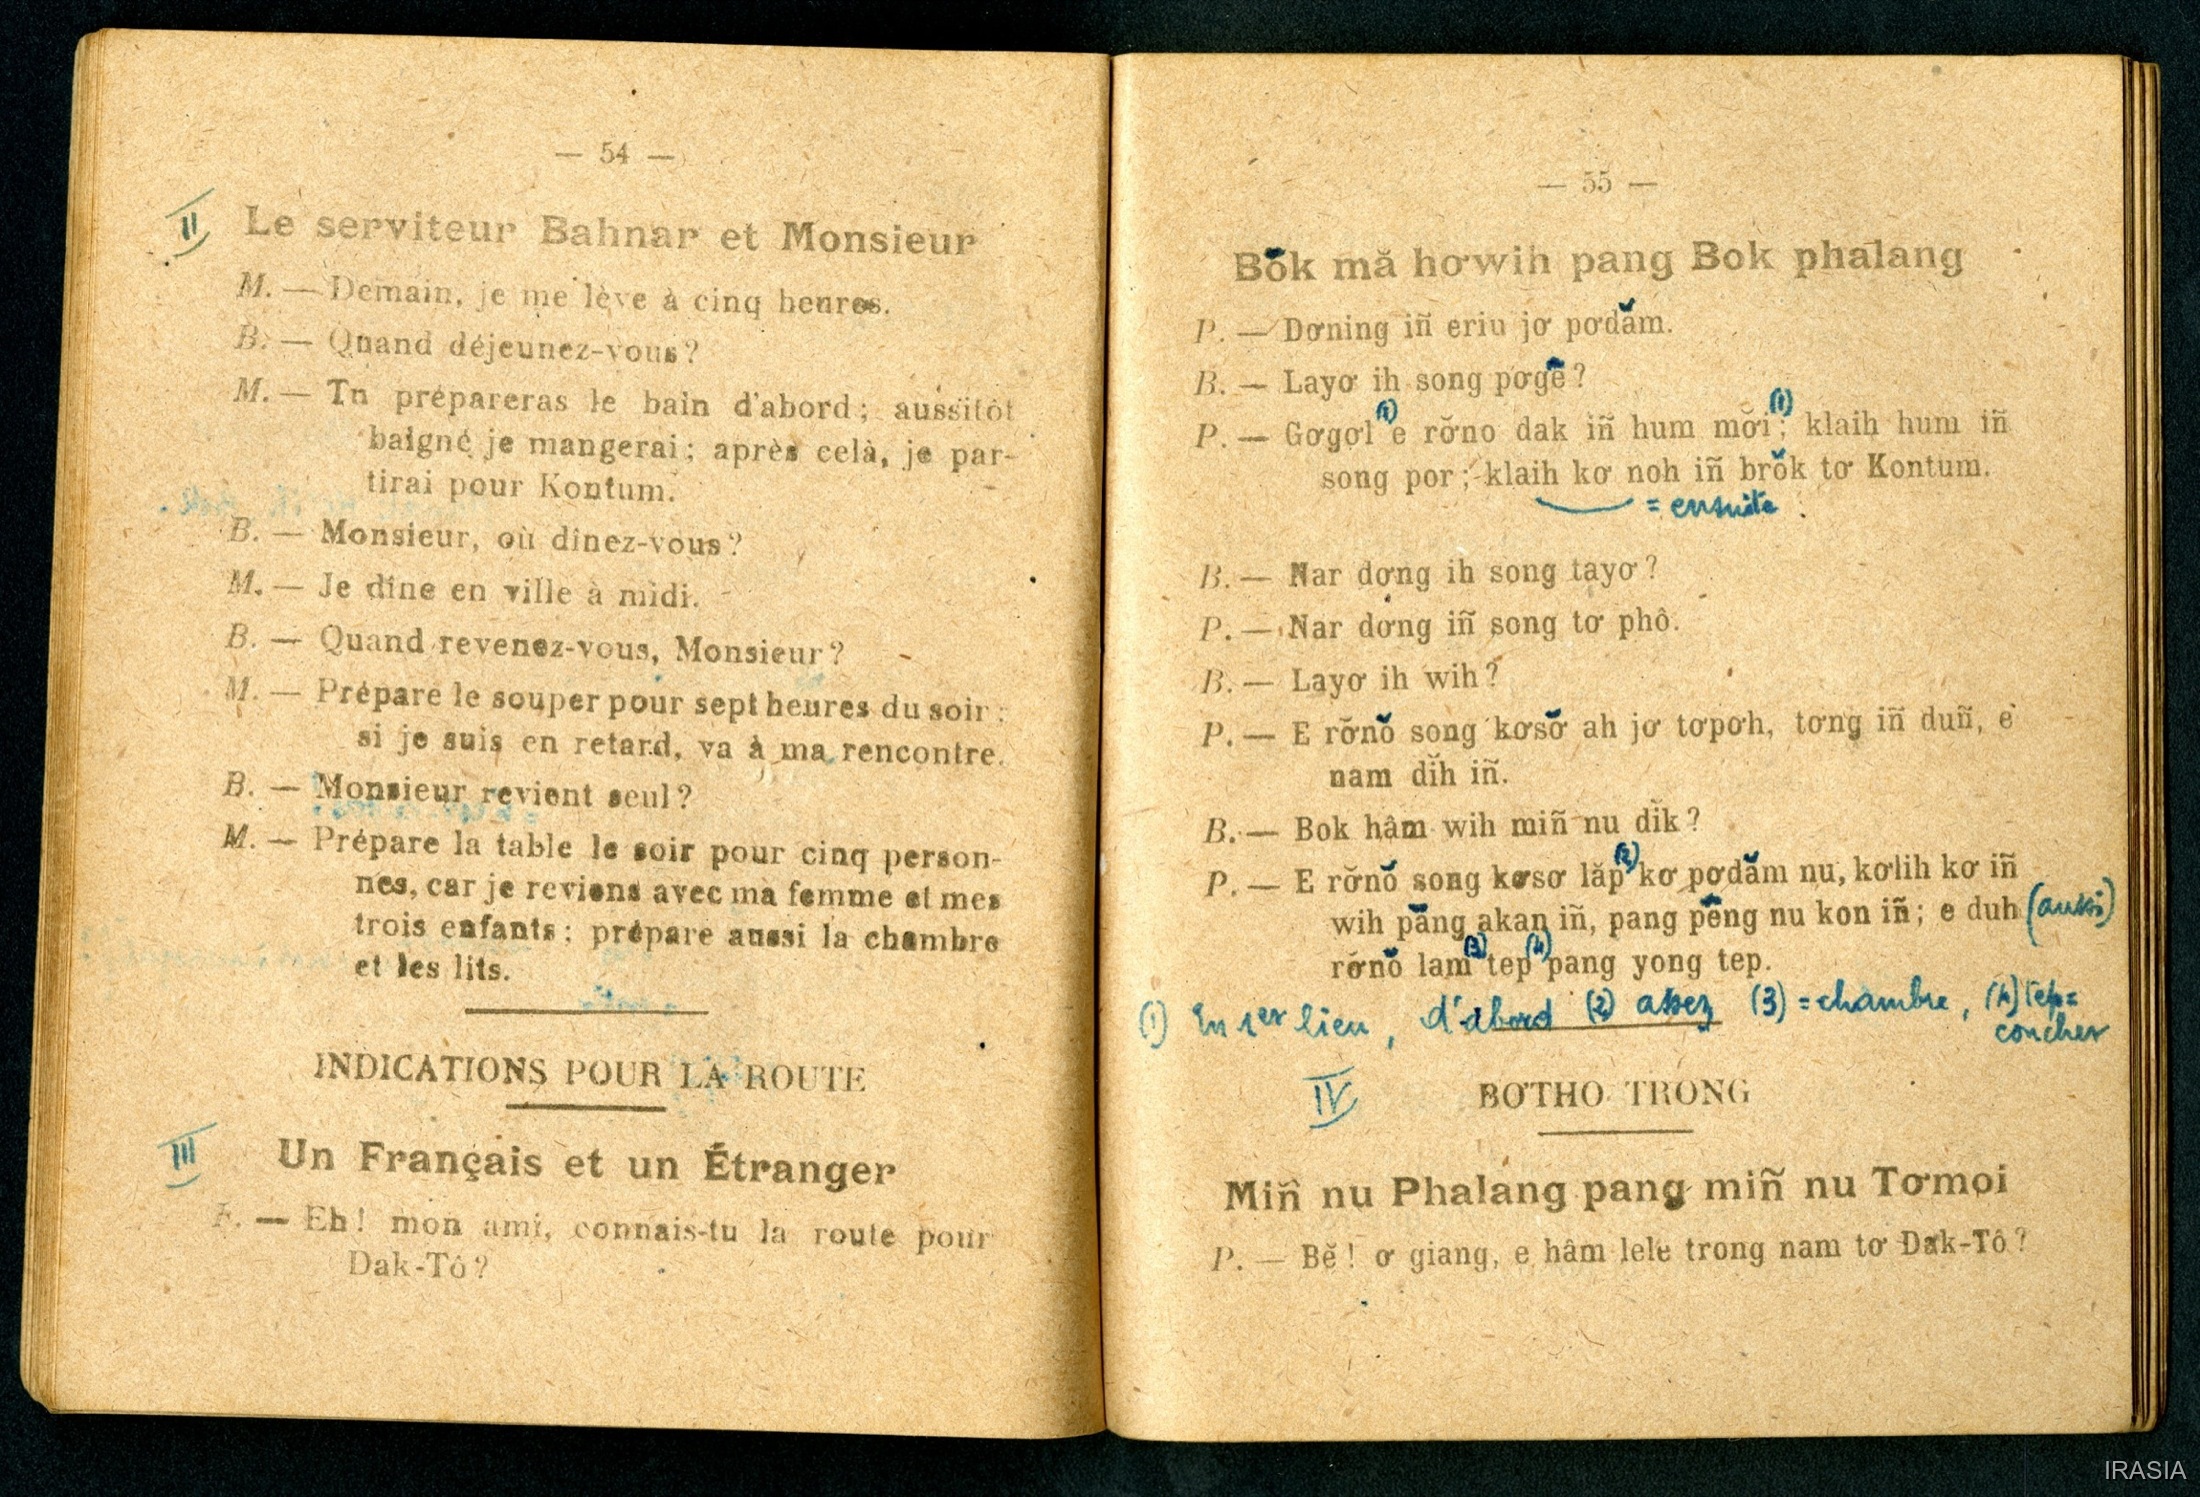 — 54 —
II
Le serviteur Bahnar et Monsieur
M. — Demain, je me lève à cinq heures.
B. — Quand déjeunez-vous?
M. — Tu prépareras le bain d'abord; aussitôt
baigné je mangerai; après celà, je par-
tirai pour Kontum.
B. — Monsieur, où dînez-vous?
M. — Je dîne en ville à midi.
B. — Quand revenez-vous, Monsieur?
M. — Prépare le souper pour sept heures du soir;
si je suis en retard, va à ma rencontre.
B. — Monsieur revient seul?
M. — Prépare la table le soir pour cinq person-
nes, car je reviens avec ma femme et mes
trois enfants; prépare aussi la chambre
et les lits.
INDICATIONS POUR LA ROUTE
III
Un Français et un Étranger
F. — Eh! mon ami, connais-tu la route pour
Dak-Tô?
— 55 —
Bŏk mă hơwih pang Bok phalang
P. — Dơning iñ eriu jơ pơdăm.
B. — Layơ ih song pơgẽ?
P. — Gơgơl (1) e rơ̆no dak iñ hum mơ̆i (1); klaih hum iñ
song por; klaih kơ noh iñ brŏk tơ Kontum.
= ensuite.
B. — Nar dơng ih song tayơ?
P. — Nar dơng iñ song tơ phô.
B. — Layơ ih wih?
P. — E rơ̆nŏ song kơsơ̆ ah jơ tơpơh, tơng iñ duñ, e
nam dĭh iñ.
B. — Bok hâm wih miñ nu dĭk?
P. — E rơ̆nŏ song kơsơ lăp (2) kơ pơdăm nu, kơlih kơ iñ
wih păng akan iñ, pang pĕng nu kon iñ; e duh (aussi)
rơ̆nŏ lam (3) tep (4) pang yong tep.
(1) En 1er lieu, d'abord (2) assez (3) = chambre, (4) Tep =
coucher
IV
BƠTHO TRONG
Miñ nu Phalang pang miñ nu Tơmoi
P. — Bĕ! ơ giang, e hâm lele trong nam tơ Đak-Tô?
IRASIA